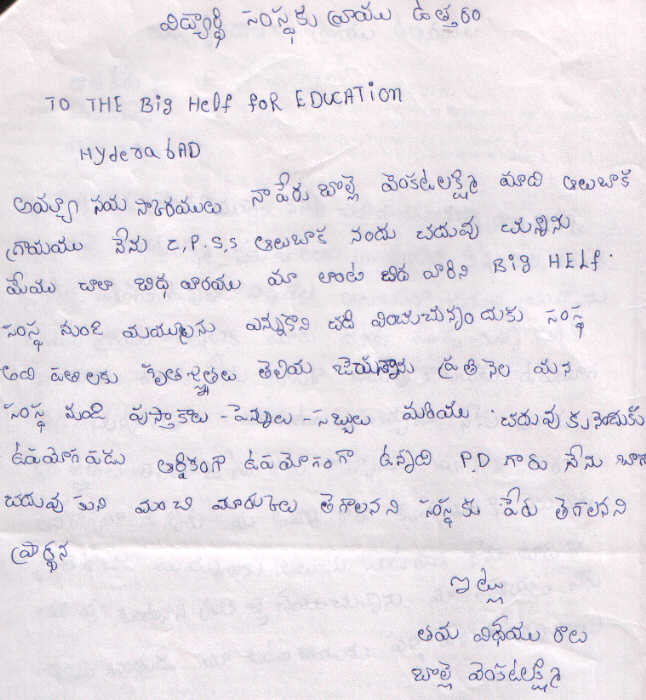 విద్యార్థి సంస్థకు వ్రాయు ఉత్తరం
TO THE Big Helf foR EDUCATION
HyderabAD
అయ్యా నమ స్కారములు నా పేరు బొల్లె వెంకటలక్ష్మి మాది ఆలుబాక
గ్రామము నేను Z.P.S.S ఆలుబాక నందు చదువు చున్నాను
మేము చాలా బిద వారము మా లాంటి బిద వారిని Big HELf.
సంస్థ నుండి మమ్మలను ఎన్నుకొని చది వించుచున్నం దుకు సంస్థ
అది పతులకు కృతజ్ఞతలు తెలియ జేయుచ్నాను ప్రతినెల మన
సంస్థ నుండి పుస్తాకాలు - పెన్నులు - సబ్బులు మరియు చదువుకునెందుకు
ఉపయోగ పడు ఆర్థికంగా ఉపయోగంగా ఉన్నది P.D గారు నేను బాగ
చదువు కుని మంచి మారుకులు తెగాలనని సంస్థకు పేరు తెగలనని
ప్రార్థన
ఇట్లు
తమ విధేయు రాలు
బొల్లె వెంకటలక్ష్మి